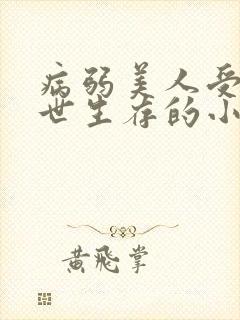 病弱美人受
世生存的小
黄飛掌